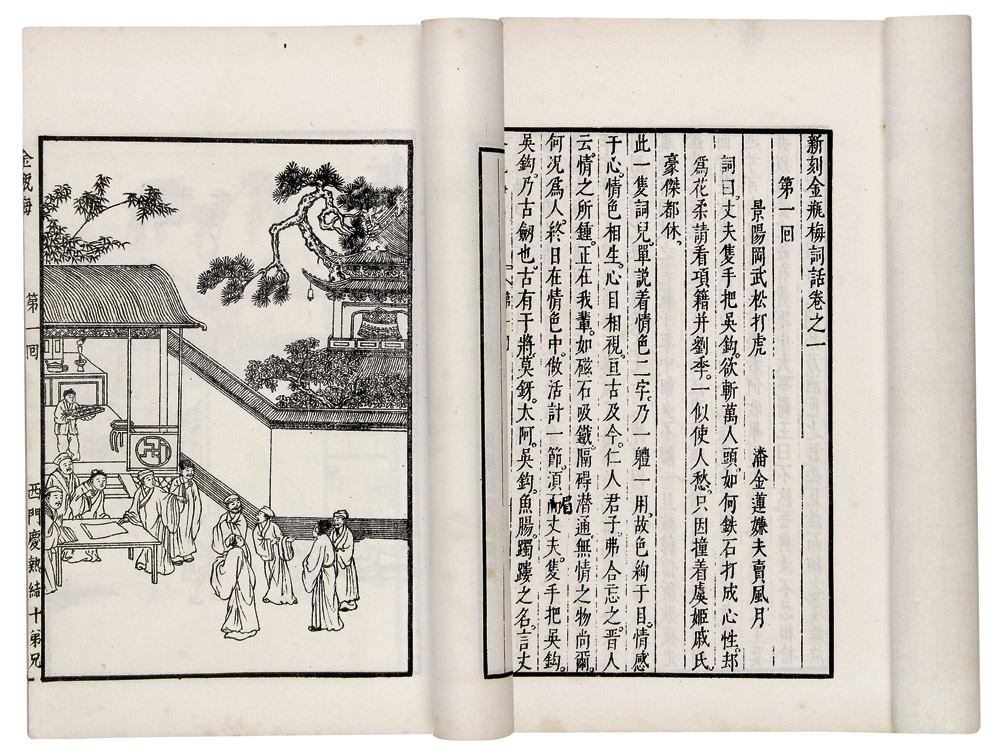 新刻金瓶梅詞話卷之一
第一回
景陽岡武松打虎 潘金蓮嫌夫賣風月
詞曰。丈夫隻手把吳鈎。欲斬萬人頭。如何鉄石打成心性。却
爲花柔。請看項籍并劉季。一似使人愁。只因撞着虞姬戚氏。
豪傑都休。
此一隻詞兒。單說着情色二字。乃一體一用。故色絢于目。情感
于心。情色相生。心目相視。亘古及今。仁人君子。弗合忘之。晋人
云。情之所鍾。正在我輩。如磁石吸鐵。隔碍潜通。無情之物尚爾。
何况爲人。終日在情色中。做活計一節。須而丈夫隻手把吳鈎。
吳鈎。乃古劍也。古有干將。莫釾。太阿。吳鈎。魚腸。躅鏤之名。言丈
金瓶梅 第一回 西門慶熱結十弟兄